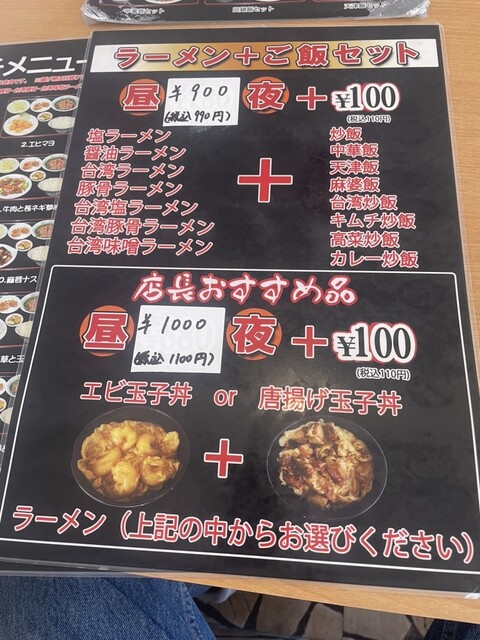 天津飯セット
ラーメン+ご飯セット
昼 ¥900 (税込990円) 夜 +¥100
(税込110円)
塩ラーメン
醤油ラーメン
台湾ラーメン
豚骨ラーメン
台湾塩ラーメン
台湾豚骨ラーメン
台湾味噌ラーメン
+
炒飯
中華飯
天津飯
麻婆飯
台湾炒飯
キムチ炒飯
高菜炒飯
カレー炒飯
店長おすすめ品
昼 ¥1000 (税込1100円) 夜 +¥100
(税込110円)
エビ玉子丼 or 唐揚げ玉子丼
+
ラーメン(上記の中からお選びください)
メニュー
2.エビマヨ